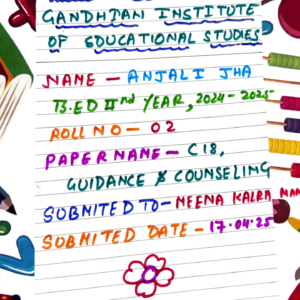 GANDHIAN INSTITUTE
OF EDUCATIONAL STUDIES
NAME - ANJALI JHA
B.ED IInd YEAR, 2024-2025
ROLL NO - 02
PAPER NAME - C18,
GUIDANCE & COUNSELING
SUBMITED TO - MEENA KALRA MAM
SUBMITED DATE - 17.04.25